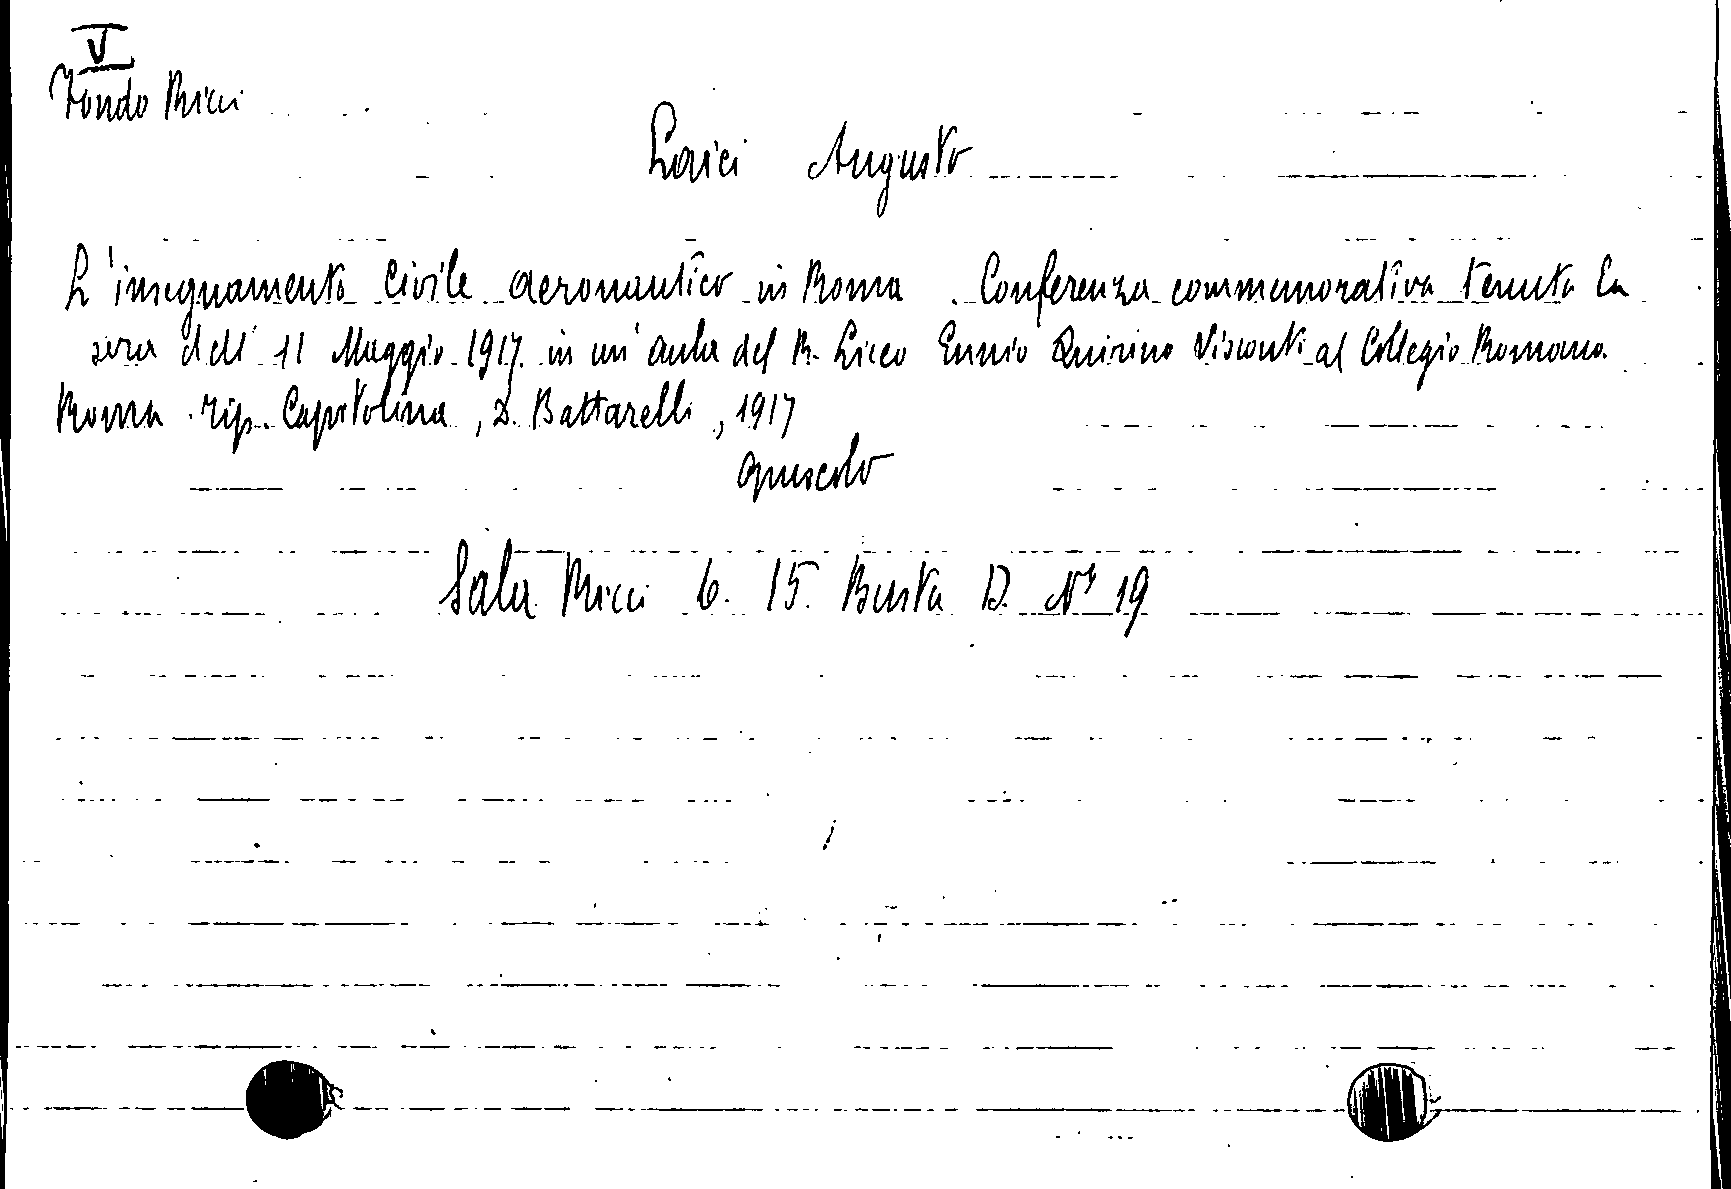 V
Fondo Ricci
Laici Augusto
L'insegnamento Civile aeronautico in Roma . Conferenza commemorativa tenuta la
sera dell' 11 Maggio 1917 in un'aula del R. Liceo Ennio Quirino Visconti al Collegio Romano.
Roma . Tip. Capitolina, D. Battarelli, 1917
opuscolo
Sala Ricci 6. 15. Busta D. N° 19